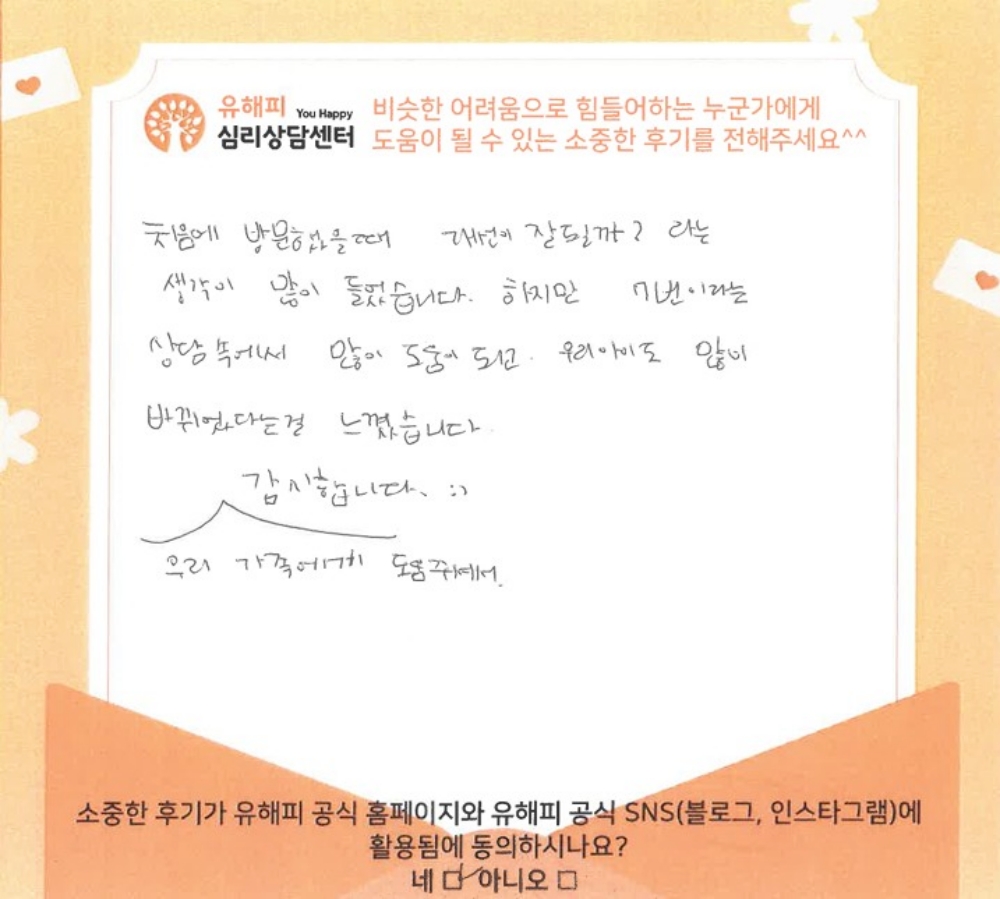 유해피 You Happy
심리상담센터
비슷한 어려움으로 힘들어하는 누군가에게
도움이 될 수 있는 소중한 후기를 전해주세요^^
처음에 방문했을때 개선이 잘될까? 라는
생각이 많이 들었습니다. 하지만 7번이라는
상담속에서 많이 도움이 되고. 우리아이도 많이
바뀌었다는걸 느꼈습니다.
감사합니다. :)
우리 가족에게 도움주셔서.
소중한 후기가 유해피 공식 홈페이지와 유해피 공식 SNS(블로그, 인스타그램)에
활용됨에 동의하시나요?
네 ☑ 아니오 □